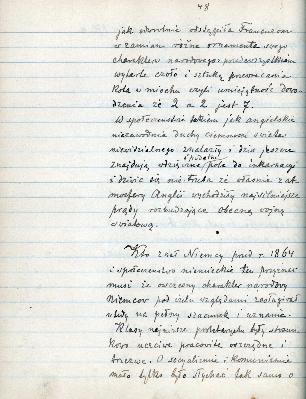 48
jak odwrotnie odstąpiła Francuzom
w zamian różne ornamenta swego
charakteru narodowego: przedewszystkiem
wytarte czoło i sztukę przewracania
kota w miechu czyli umiejętność dowo-
dzenia że 2 a 2 jest 7.
W społeczeństwie takiem jak angielskie
niezawodnie duchy ciemności świata
niewidzialnego znalazły i dziś jeszcze
znajdują wdzięczne i podatne pole do inkarnacji
i dziwić się nie trzeba że właśnie z at-
mosfery Anglii wychodziły najsilniejsze
prądy rozbudzające obecną wojnę
światową.
Kto znał Niemcy przed r. 1864
i społeczeństwo niemieckie ten przyznać
musi że ówczesny charakter narodowy
Niemców pod wielu względami zasługiwał
na pełny szacunek i uznanie.
Klasy najniższe proletaryatu były stosun-
kowo uczciwe pracowite oszczędne i
trzeźwe. O socyalizmie i komunizmie
mało tylko było słychać tak samo o